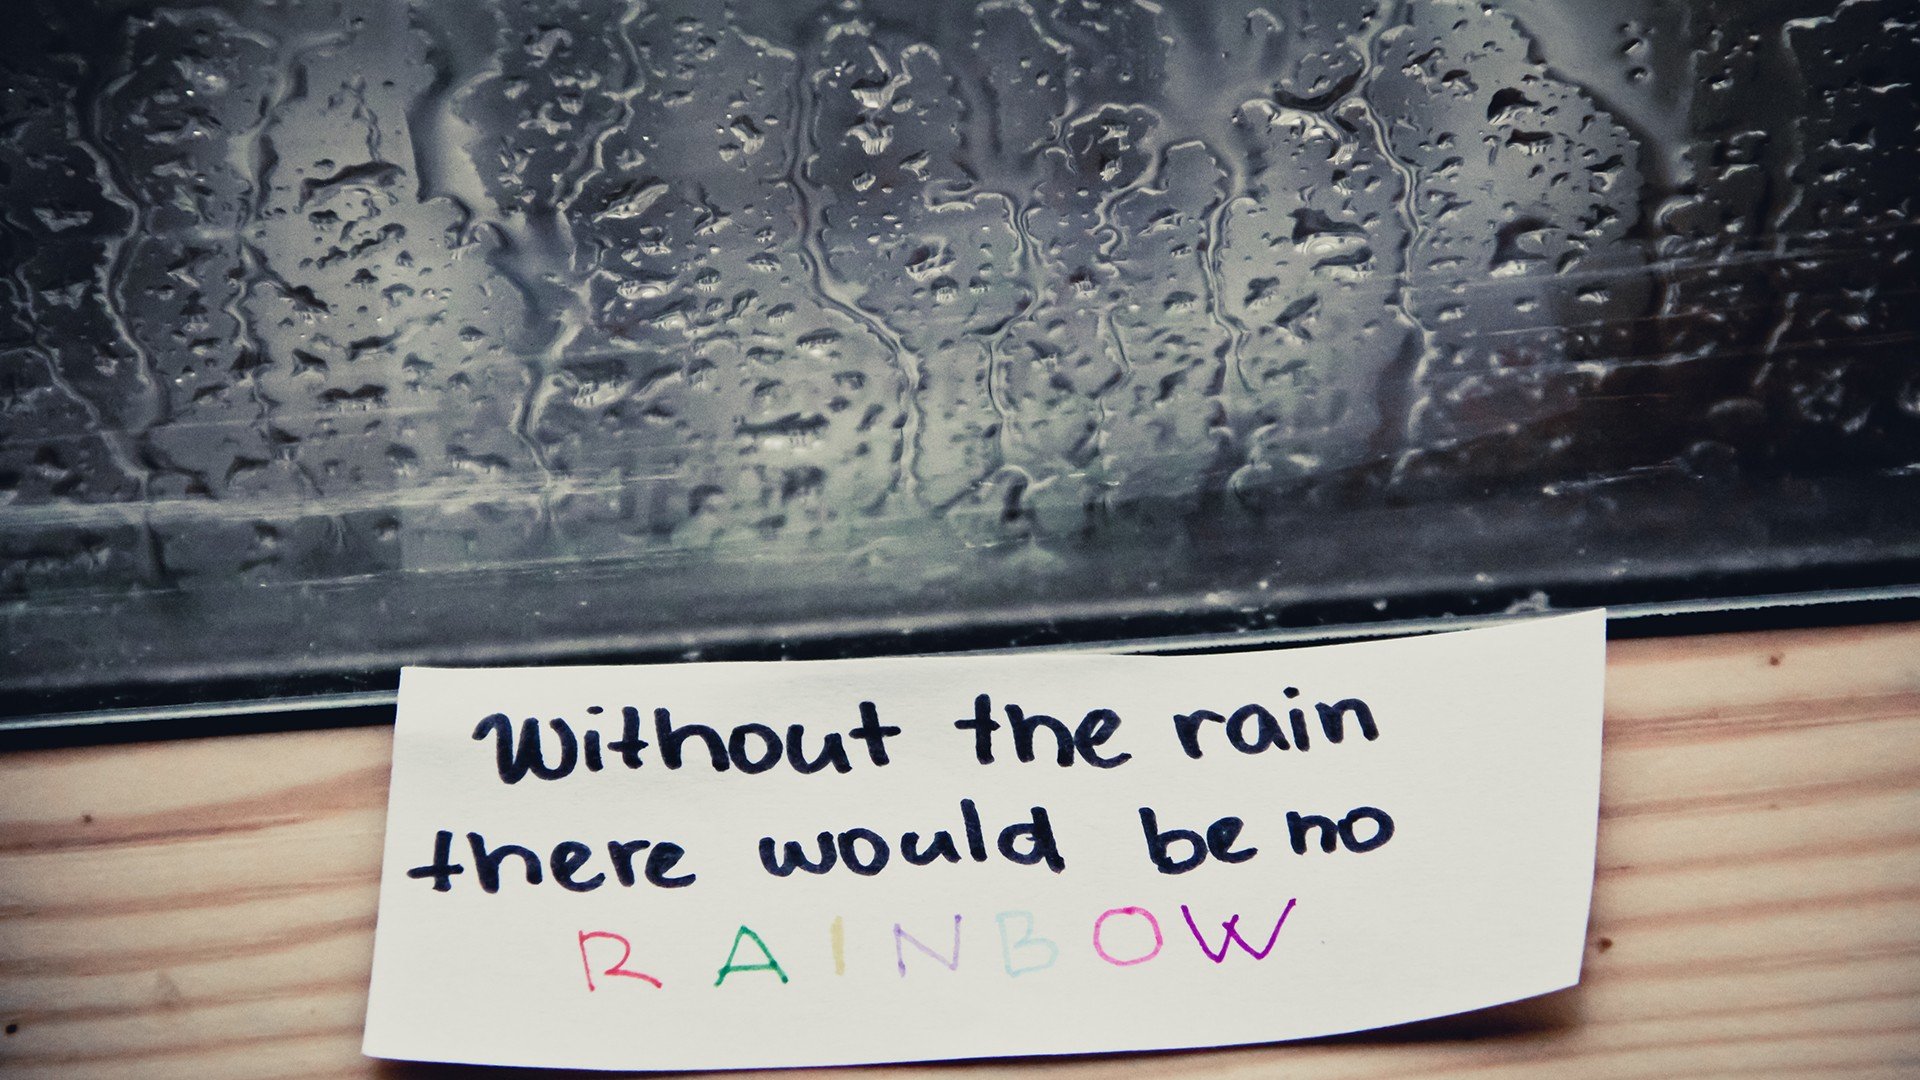 Without the rain
there would be no
RAINBOW